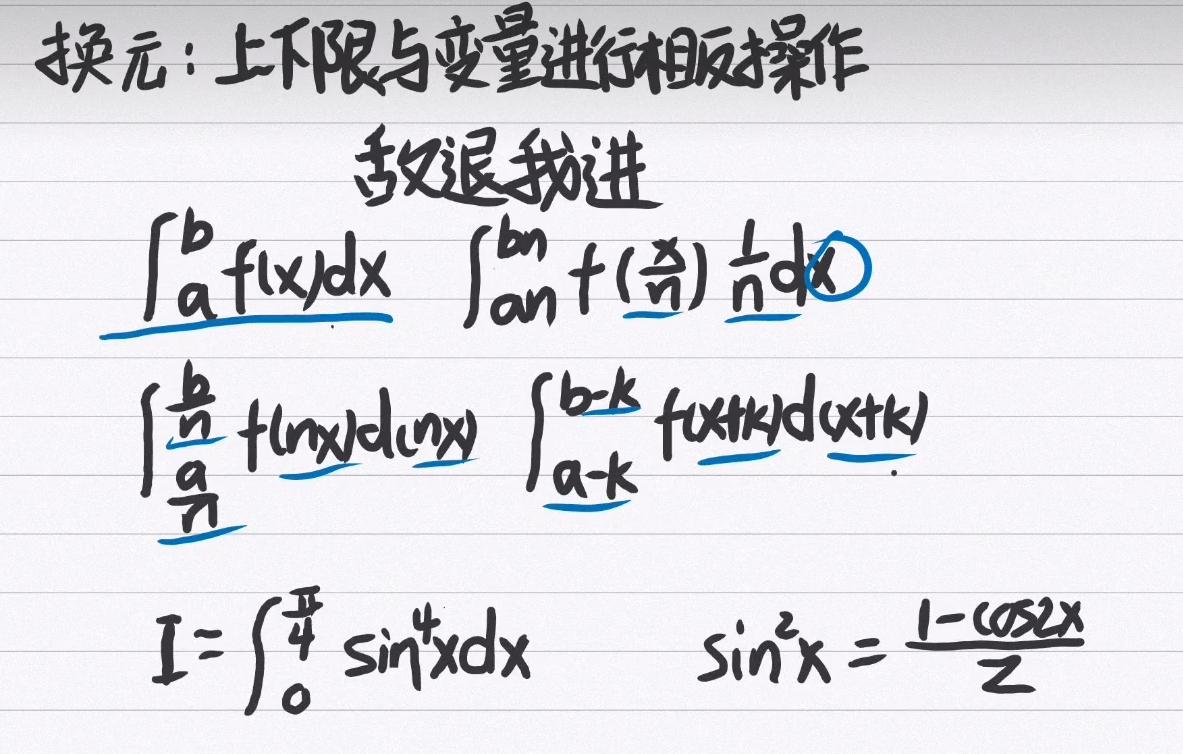 换元：上下限与变量进行相反操作
敌退我进
∫_a^b f(x)dx ∫_{an}^{bn} f(x/n) 1/n dx
∫_{a/n}^{b/n} f(nx)d(nx) ∫_{a-k}^{b-k} f(x+k)d(x+k)
I=∫_0^{π/4} sin⁴xdx sin²x=(1-cos2x)/2